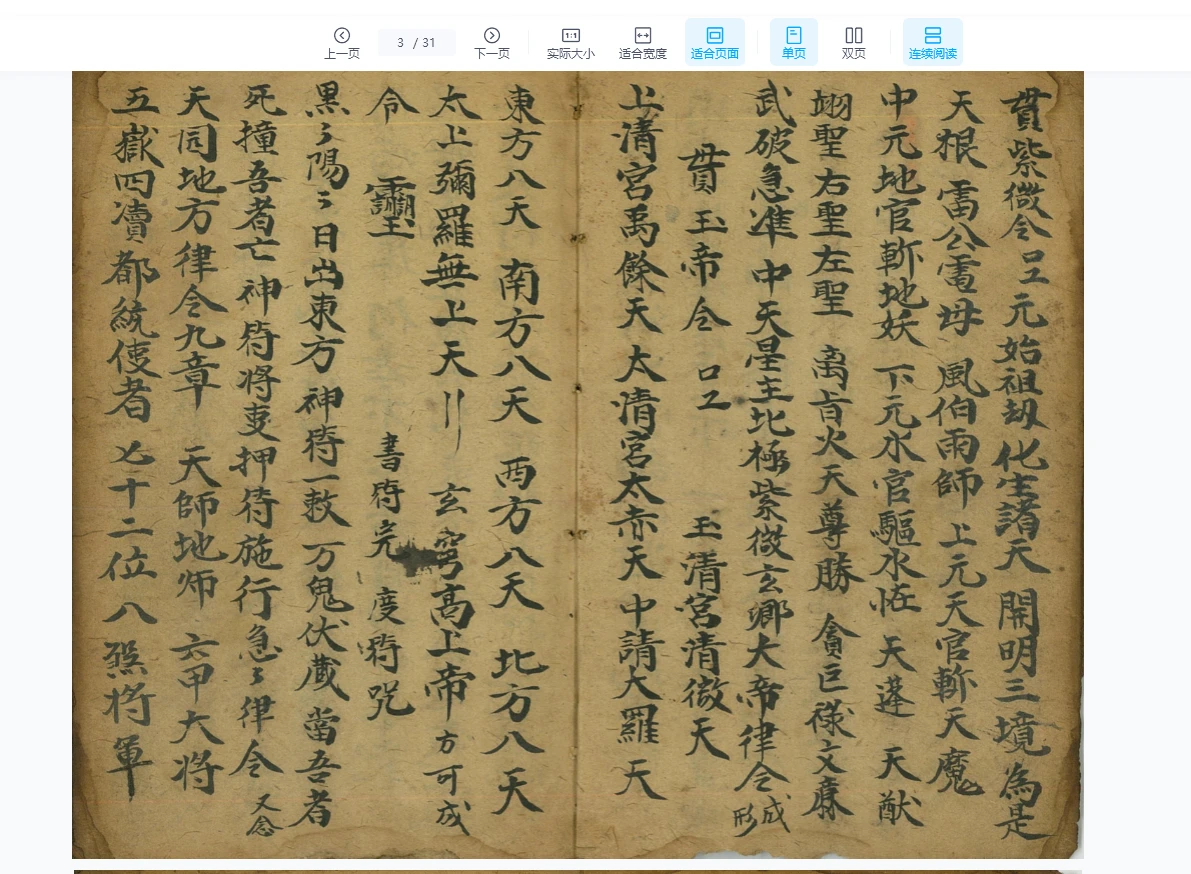 上一页
3 / 31
下一页
实际大小
适合宽度
适合页面
单页
双页
连续阅读
貫紫微令口工 元始祖劫 化生諸天 開明三境 為是
天根 雷公電母 風伯雨師 上元天官斬天魔
中元地官斬地妖 下元水官驅水怪 天蓬 天猷
翊聖右聖左聖 离宫火天尊勝 貪巨祿文廉
武破急準 中天星主北極紫微玄卿大帝律令 成形
貫玉帝令 口工 玉清宮清微天
上清宮禹餘天 太清宮太赤天 中請大羅天
東方八天 南方八天 西方八天 北方八天
太上彌羅無上天 玄穹高上帝 方可成
令 書符完 度符咒
黑々陽々日出東方 神符一敕 万鬼伏藏 當吾者
死撞吾者亡神符將吏押符施行急々律令 又念
天圓地方律令九章 天師地师 六甲大将
五嶽四瀆都統使者 七十二位 八煞将軍